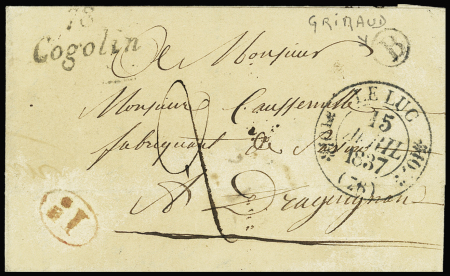 78
Cogolin
GRIMAUD
B
A Monsieur
Monsieur Caussemille
fabriquant de
A Draguignan
LE LUC
15
AVRIL
1837
(78)
2